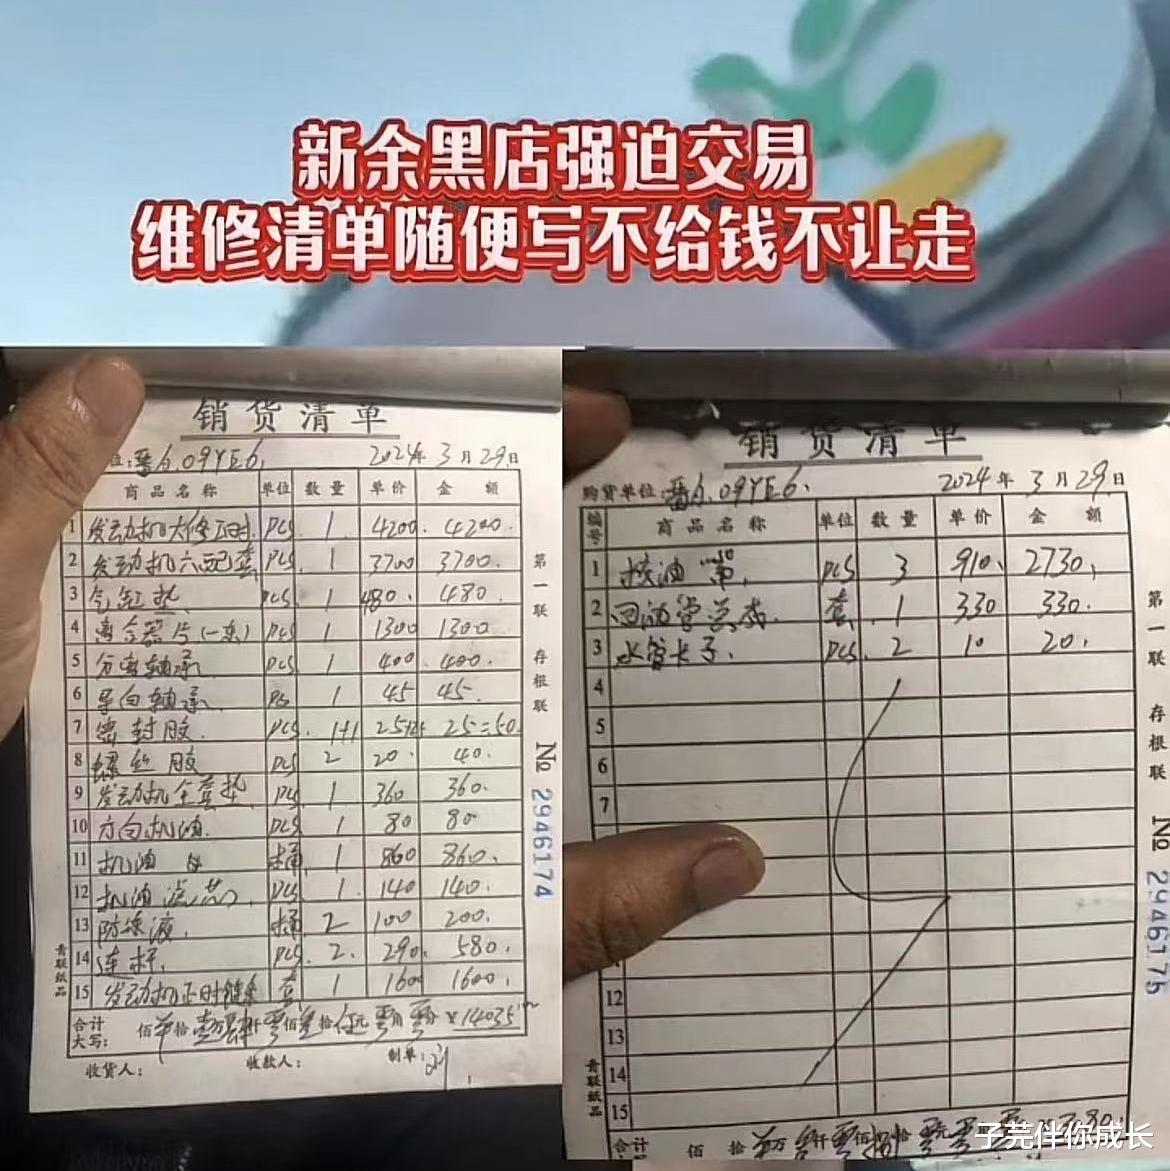 新余黑店强迫交易
维修清单随便写不给钱不让走
销货清单
09YE6. 2024年3月29日
商品名称 单位 数量 单价 金额
1 发动机大修工时. PCS 1. 4200. 4200.
2 发动机六配套 PCS 1 3700 3700.
3 气缸垫. PCS. 1 480. 480.
4 离合器片(一东) PCS 1 1300 1300
5 分离轴承 PCS 1 400. 400.
6 导向轴承. PCS 1 45 45.
7 密封胶. PCS. 1+1 25+25 25=50
8 螺丝胶 PCS 2 20. 40.
9 发动机全套垫. PCS 1 360 360.
10 方向机油. PCS 1 80 80
11 机油 桶. 1 860 860.
12 机油滤芯) PCS 1. 140 140.
13 防冻液. 桶 2 100 200.
14 连杆. PCS. 2. 290. 580.
15 发动机正时链条 套 1 1600 1600.
合计大写: 佰 拾壹万肆仟零佰叁拾伍元零角零分 ¥14035
收货人: 收款人: 制单:
第一联 存根联
No 2946174
青联纸品
销货清单
购货单位: 09YE6. 2024年3月29日
编号 商品名称 单位 数量 单价 金额
1 PCS 3 910. 2730.
2 回油管总成. 套. 1 330 330.
3 水管卡子. PCS. 2 10 20.
4
5
6
7
12
13
14
15
合计 佰 拾 万 仟零佰捌拾零元零 零
第一联 存根联
No 2946175
青联纸品
子芫伴你成长